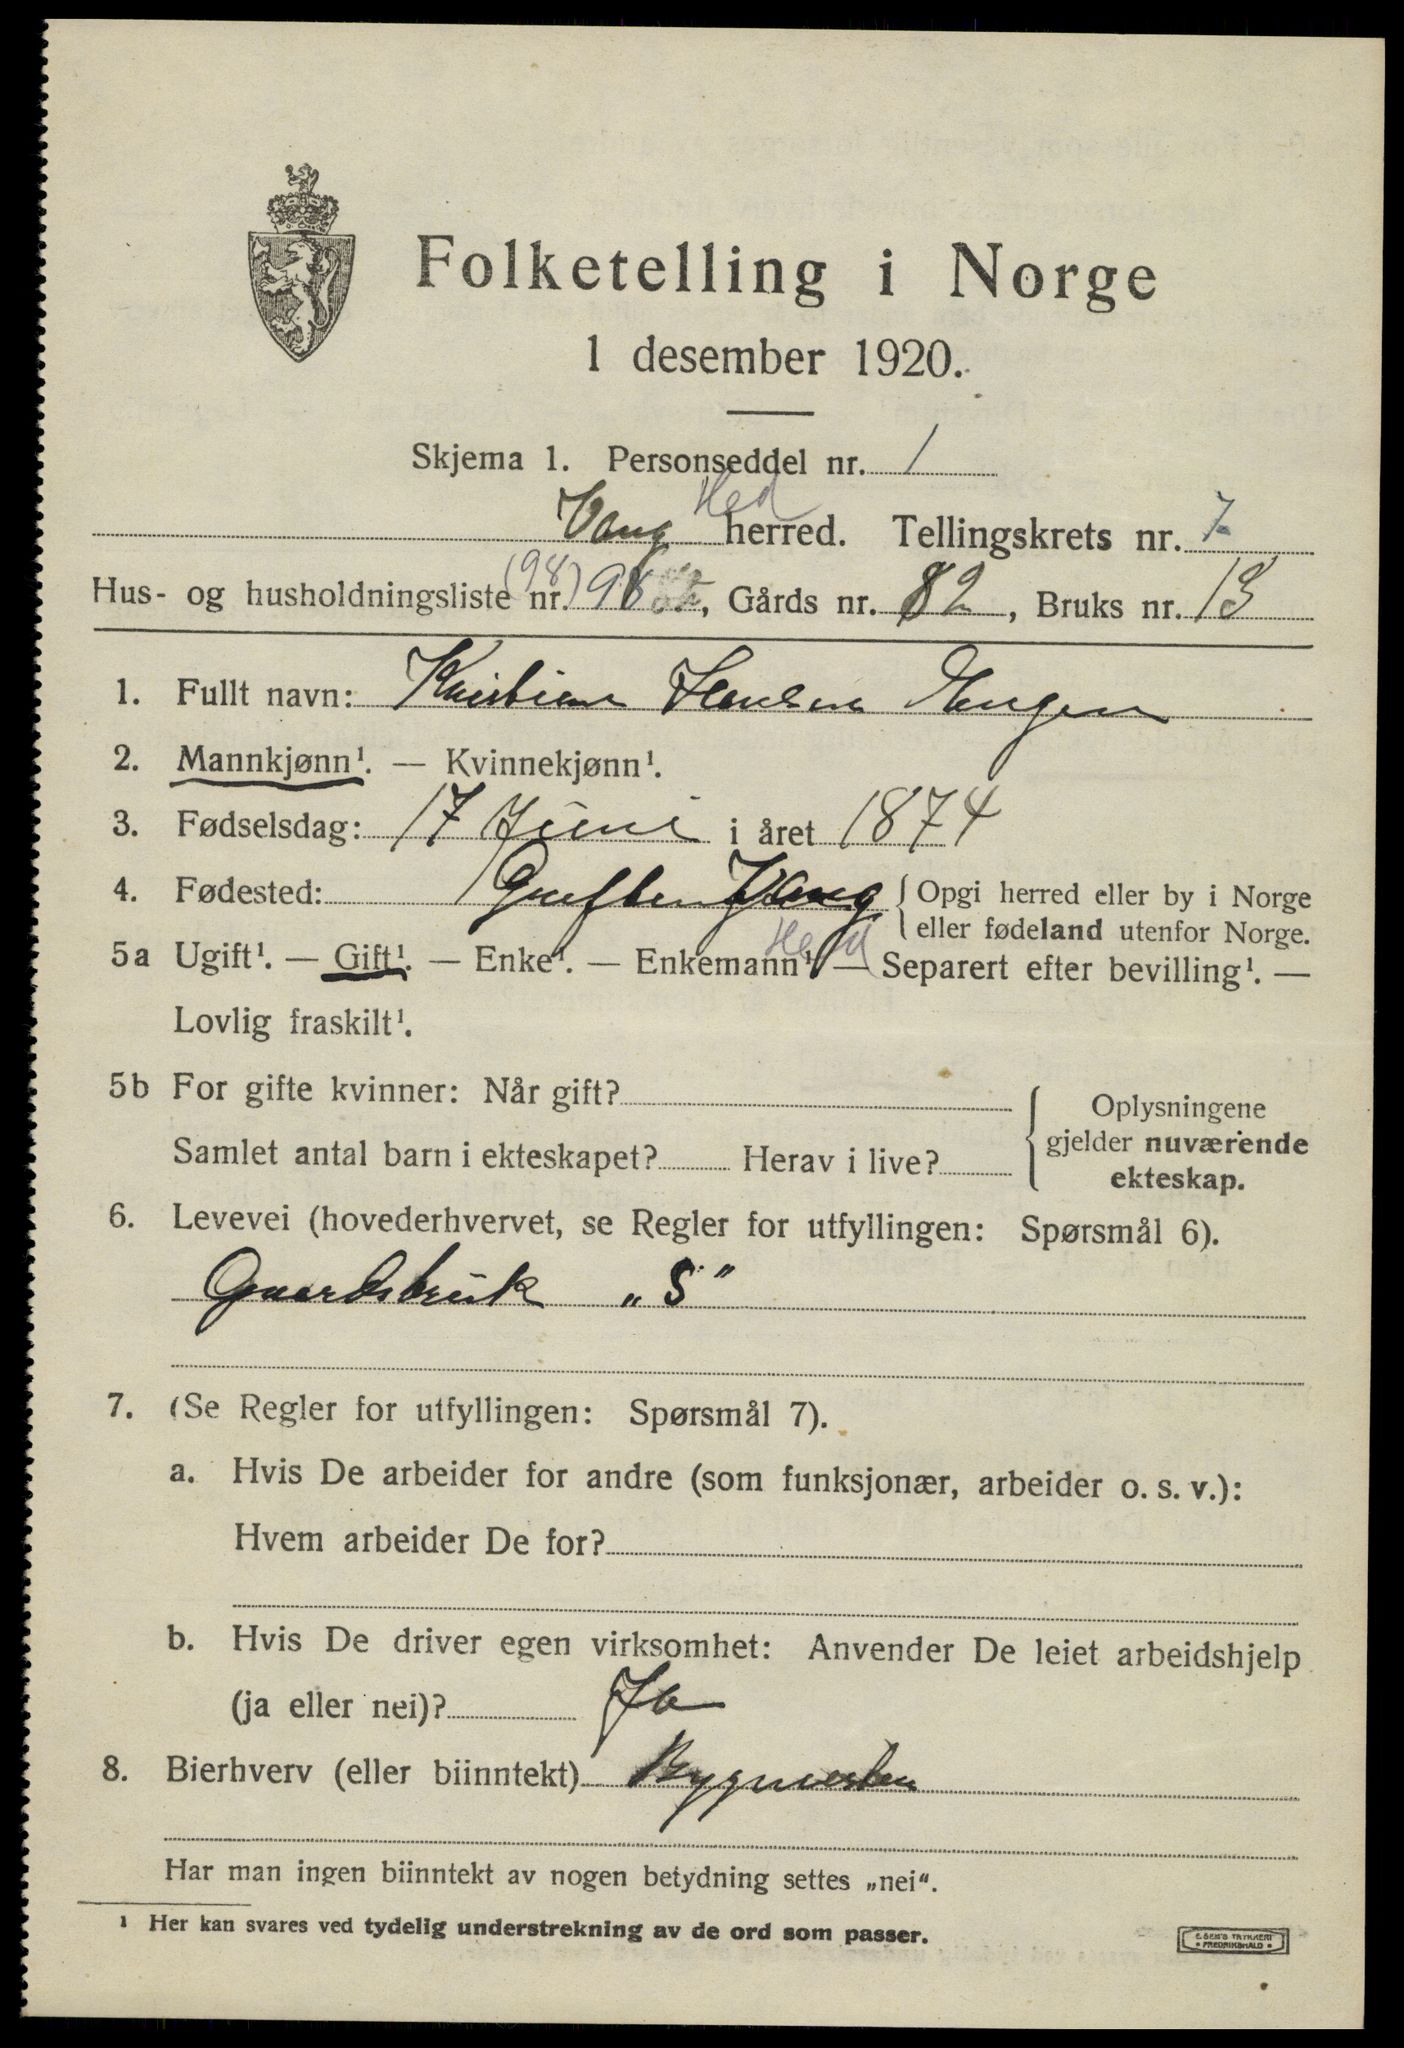 Folketelling i Norge
1 desember 1920.
Skjema 1. Personseddel nr. 1
Vang Hed herred. Tellingskrets nr. 7
Hus- og husholdningsliste nr. (98) 98, Gårds nr. 82, Bruks nr. 13
1. Fullt navn: Kristian Hansen Haugen
2. Mannkjønn¹. — Kvinnekjønn¹.
3. Fødselsdag: 17 Juni i året 1874
4. Fødested: Vang { Opgi herred eller by i Norge
Hed eller fødeland utenfor Norge.
5a Ugift¹. — Gift¹. — Enke¹. — Enkemann¹. — Separert efter bevilling¹. —
Lovlig fraskilt¹.
5b For gifte kvinner: Når gift?
Samlet antal barn i ekteskapet? Herav i live?
{ Oplysningene
gjelder nuværende
ekteskap.
6. Levevei (hovederhvervet, se Regler for utfyllingen: Spørsmål 6).
Gaardsbruk „S"
7. (Se Regler for utfyllingen: Spørsmål 7).
a. Hvis De arbeider for andre (som funksjonær, arbeider o. s. v.):
Hvem arbeider De for?
b. Hvis De driver egen virksomhet: Anvender De leiet arbeidshjelp
(ja eller nei)? Ja
8. Bierhverv (eller biinntekt)
Har man ingen biinntekt av nogen betydning settes „nei".
¹ Her kan svares ved tydelig understrekning av de ord som passer.
E. SEM'S TRYKKERI
FREDRIKSHALD